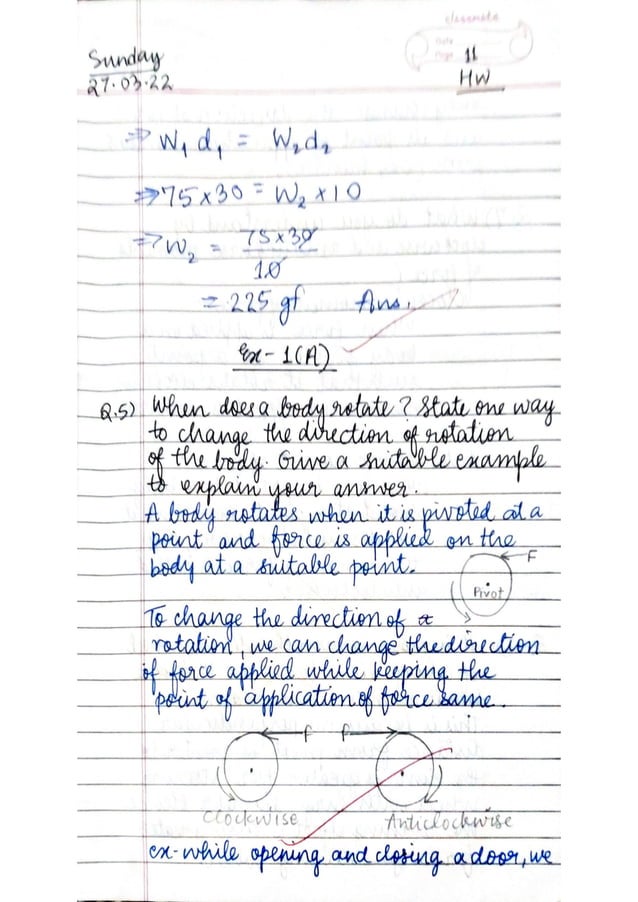 classmate
Date
Page 11
Sunday
27.03.22
HW
⇒ W₁ d₁ = W₂d₂
⇒ 75×30 = W₂ × 10
⇒ W₂ = 75×30
10
= 225 gf Ans.
Ex-1(A)
Q.5) When does a body rotate? State one way
to change the direction of rotation
of the body. Give a suitable example
to explain your answer.
A body rotates when it is pivoted at a
point and force is applied on the
body at a suitable point.
F
Pivot
To change the direction of
rotation, we can change the direction
of force applied while keeping the
point of application of force same.
F F
Clockwise Anticlockwise
ex-while opening and closing a door, we